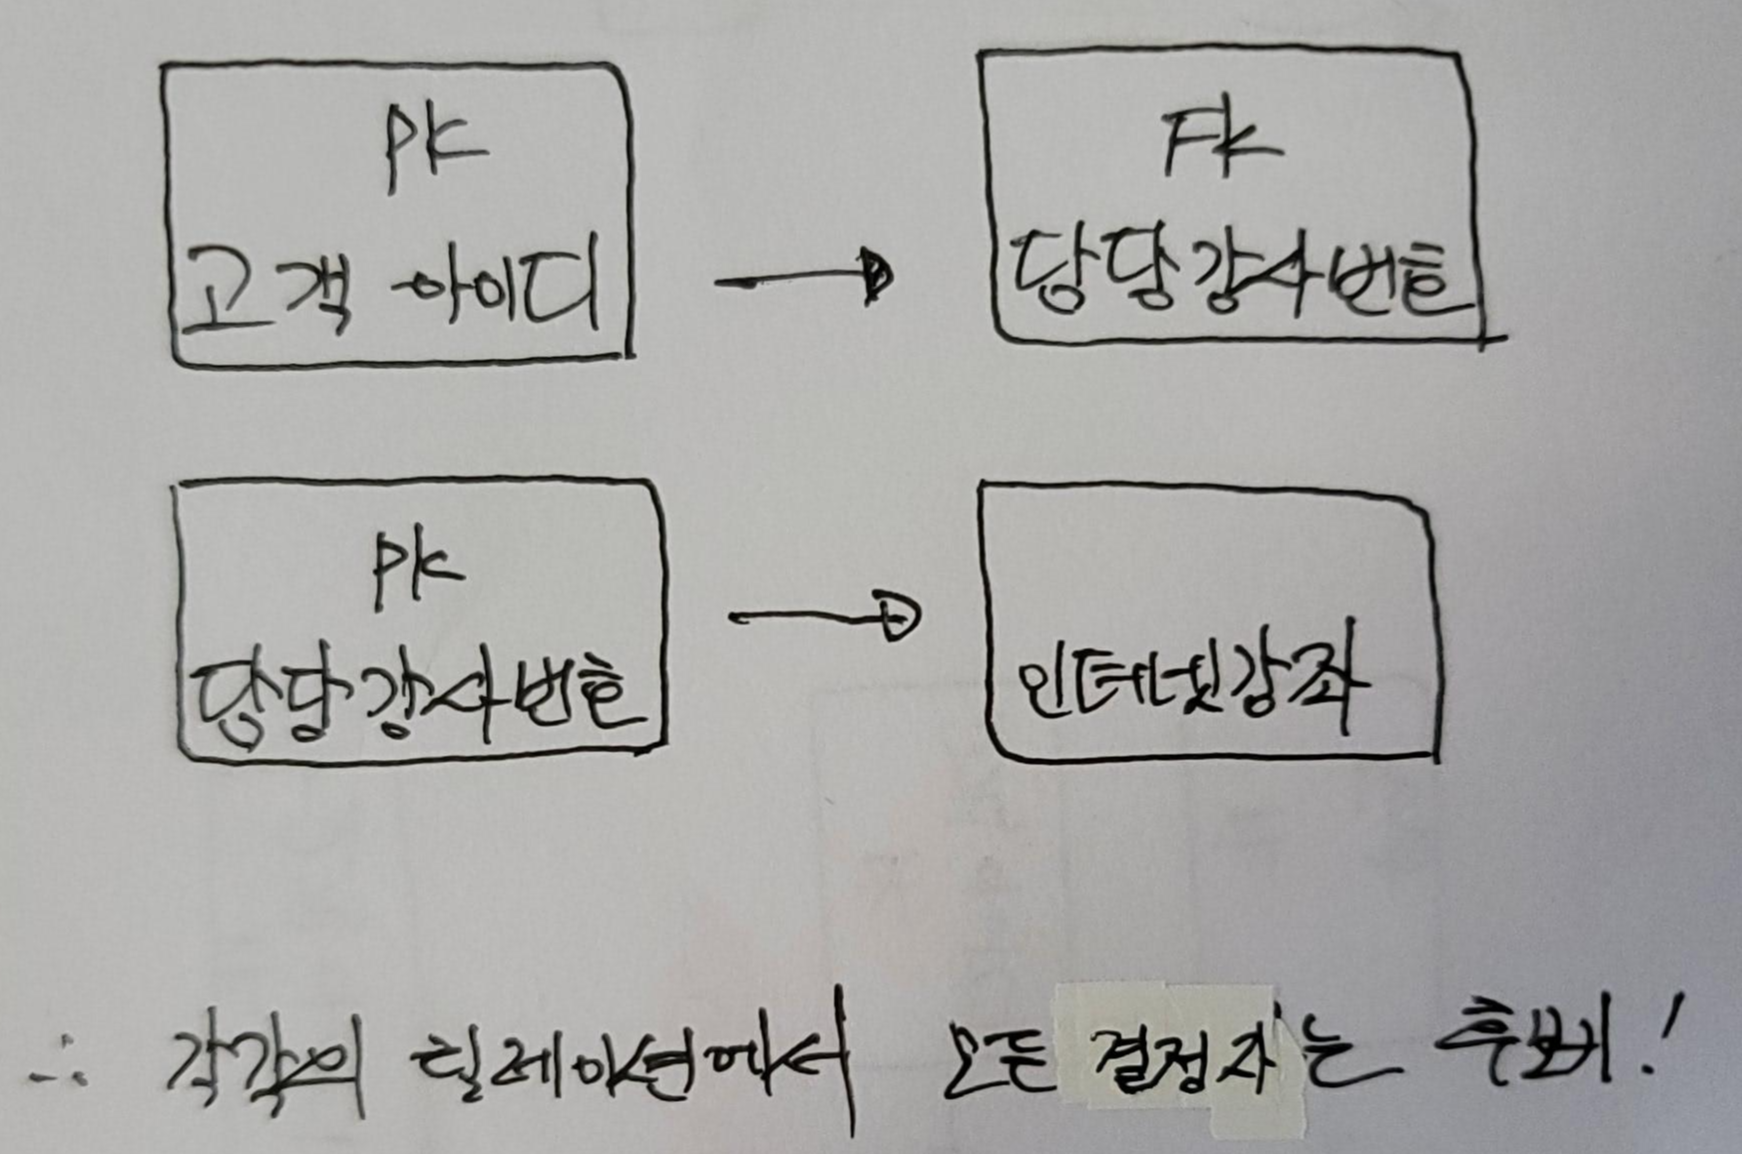 PK
고객 아이디
FK
담당강사번호
PK
담당강사번호
인터넷강좌
∴ 각각의 릴레이션에서 모든 결정자는 후보!